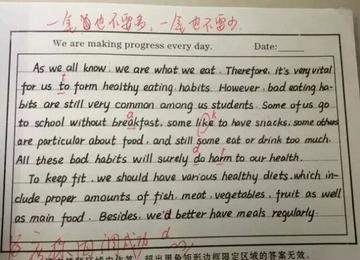 一笔道也不要多,一笔也不要少.
We are making progress every day. Date:
As we all know, we are what we eat. Therefore, it's very vital
for us to form healthy eating habits. However, bad eating ha-
bits are still very common among us students. Some of us go
to school without breakfast, some like to have snacks, some others
are particular about food, and still some eat or drink too much.
All these bad habits will surely do harm to our health.
To keep fit, we should have various healthy diets, which in-
clude proper amounts of fish, meat, vegetables, fruit as well
as main food. Besides, we'd better have meals regularly.
黑色矩形边框限定区域的答案无效。